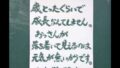 歳とったぐらいで
成長なんてしません。
おっさんが
落ち着いて見えるのは
元気が無いからです。